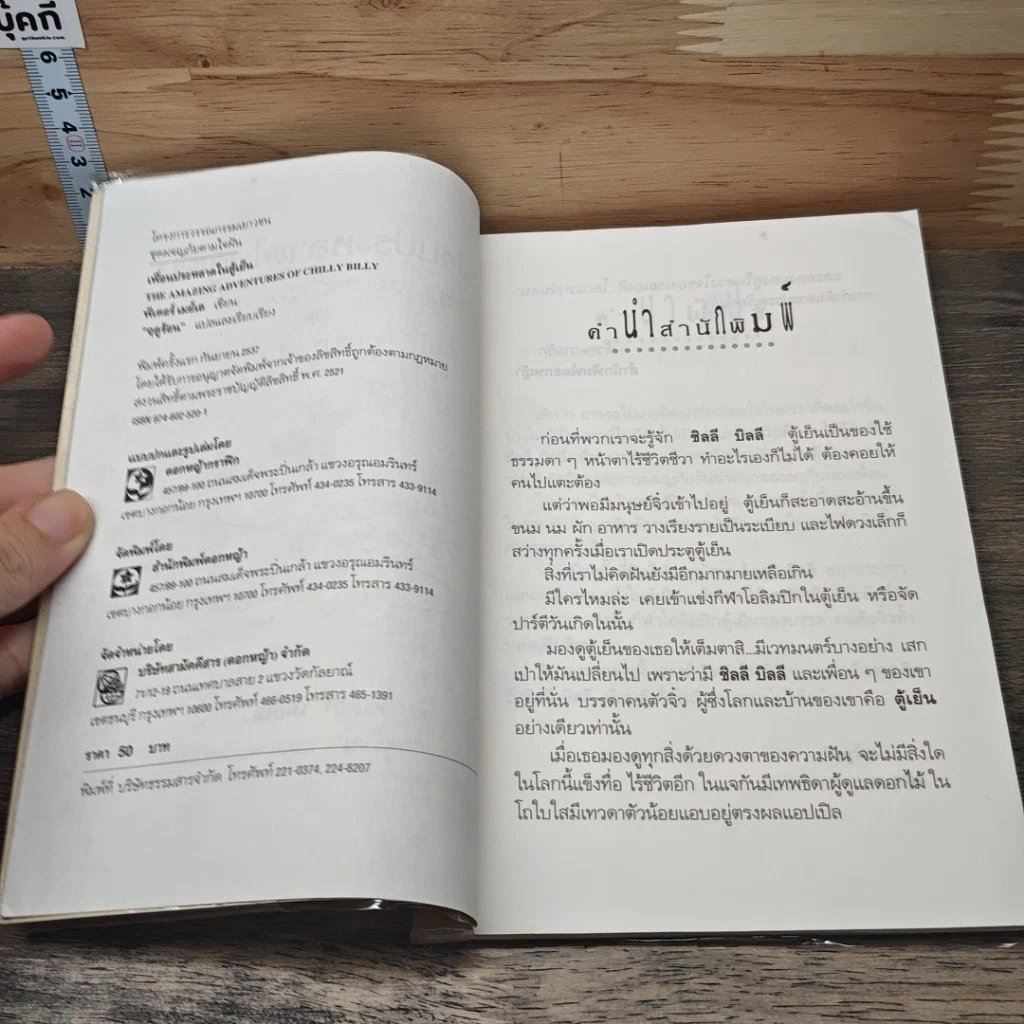 บุ๊คกี้
6
5
4
3
2
โครงการวรรณกรรมเยาวชน
ชุดผจญภัยตามใจฝัน
เพื่อนประหลาดในตู้เย็น
THE AMAZING ADVENTURES OF CHILLY BILLY
พีเตอร์ เมย์เล เขียน
"ฤดูร้อน" แปลและเรียบเรียง
พิมพ์ครั้งแรก กันยายน 2537
โดยได้รับการอนุญาตจัดพิมพ์จากเจ้าของลิขสิทธิ์ถูกต้องตามกฎหมาย
สงวนลิขสิทธิ์ตามพระราชบัญญัติลิขสิทธิ์ พ.ศ. 2521
ISBN 974-602-520-1
แบบปกและรูปเล่มโดย
ดอกหญ้ากราฟิก
457/99-100 ถนนสมเด็จพระปิ่นเกล้า แขวงอรุณอมรินทร์
เขตบางกอกน้อย กรุงเทพฯ 10700 โทรศัพท์ 434-0235 โทรสาร 433-9114
จัดพิมพ์โดย
สำนักพิมพ์ดอกหญ้า
457/99-100 ถนนสมเด็จพระปิ่นเกล้า แขวงอรุณอมรินทร์
เขตบางกอกน้อย กรุงเทพฯ 10700 โทรศัพท์ 434-0235 โทรสาร 433-9114
จัดจำหน่ายโดย
บริษัทสามัคคีสาร (ดอกหญ้า) จำกัด
71/12-19 ถนนเทศบาลสาย 2 แขวงวัดกัลยาณ์
เขตธนบุรี กรุงเทพฯ 10600 โทรศัพท์ 466-0519 โทรสาร 465-1391
ราคา 50 บาท
พิมพ์ที่ บริษัทธรรมสารจำกัด โทรศัพท์ 221-0374, 224-8207
คำนำสำนักพิมพ์
ก่อนที่พวกเราจะรู้จัก ชิลลี บิลลี ตู้เย็นเป็นของใช้
ธรรมดา ๆ หน้าตาไร้ชีวิตชีวา ทำอะไรเองก็ไม่ได้ ต้องคอยให้
คนไปแตะต้อง
แต่ว่าพอมีมนุษย์จิ๋วเข้าไปอยู่ ตู้เย็นก็สะอาดสะอ้านขึ้น
ขนม นม ผัก อาหาร วางเรียงรายเป็นระเบียบ และไฟดวงเล็กก็
สว่างทุกครั้งเมื่อเราเปิดประตูตู้เย็น
สิ่งที่เราไม่คิดฝันยังมีอีกมากมายเหลือเกิน
มีใครไหมล่ะ เคยเข้าแข่งกีฬาโอลิมปิกในตู้เย็น หรือจัด
ปาร์ตีวันเกิดในนั้น
มองดูตู้เย็นของเธอให้เต็มตาสิ...มีเวทมนตร์บางอย่าง เสก
เป่าให้มันเปลี่ยนไป เพราะว่ามี ชิลลี บิลลี และเพื่อน ๆ ของเขา
อยู่ที่นั่น บรรดาคนตัวจิ๋ว ผู้ซึ่งโลกและบ้านของเขาคือ ตู้เย็น
อย่างเดียวเท่านั้น
เมื่อเธอมองดูทุกสิ่งด้วยดวงตาของความฝัน จะไม่มีสิ่งใด
ในโลกนี้แข็งทื่อ ไร้ชีวิตอีก ในแจกันมีเทพธิดาผู้ดูแลดอกไม้ ใน
โถใบใสมีเทวดาตัวน้อยแอบอยู่ตรงผลแอปเปิล